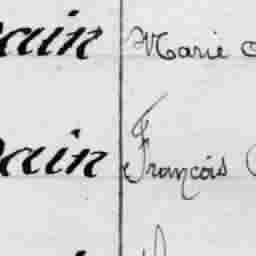 ain Marie
ain François